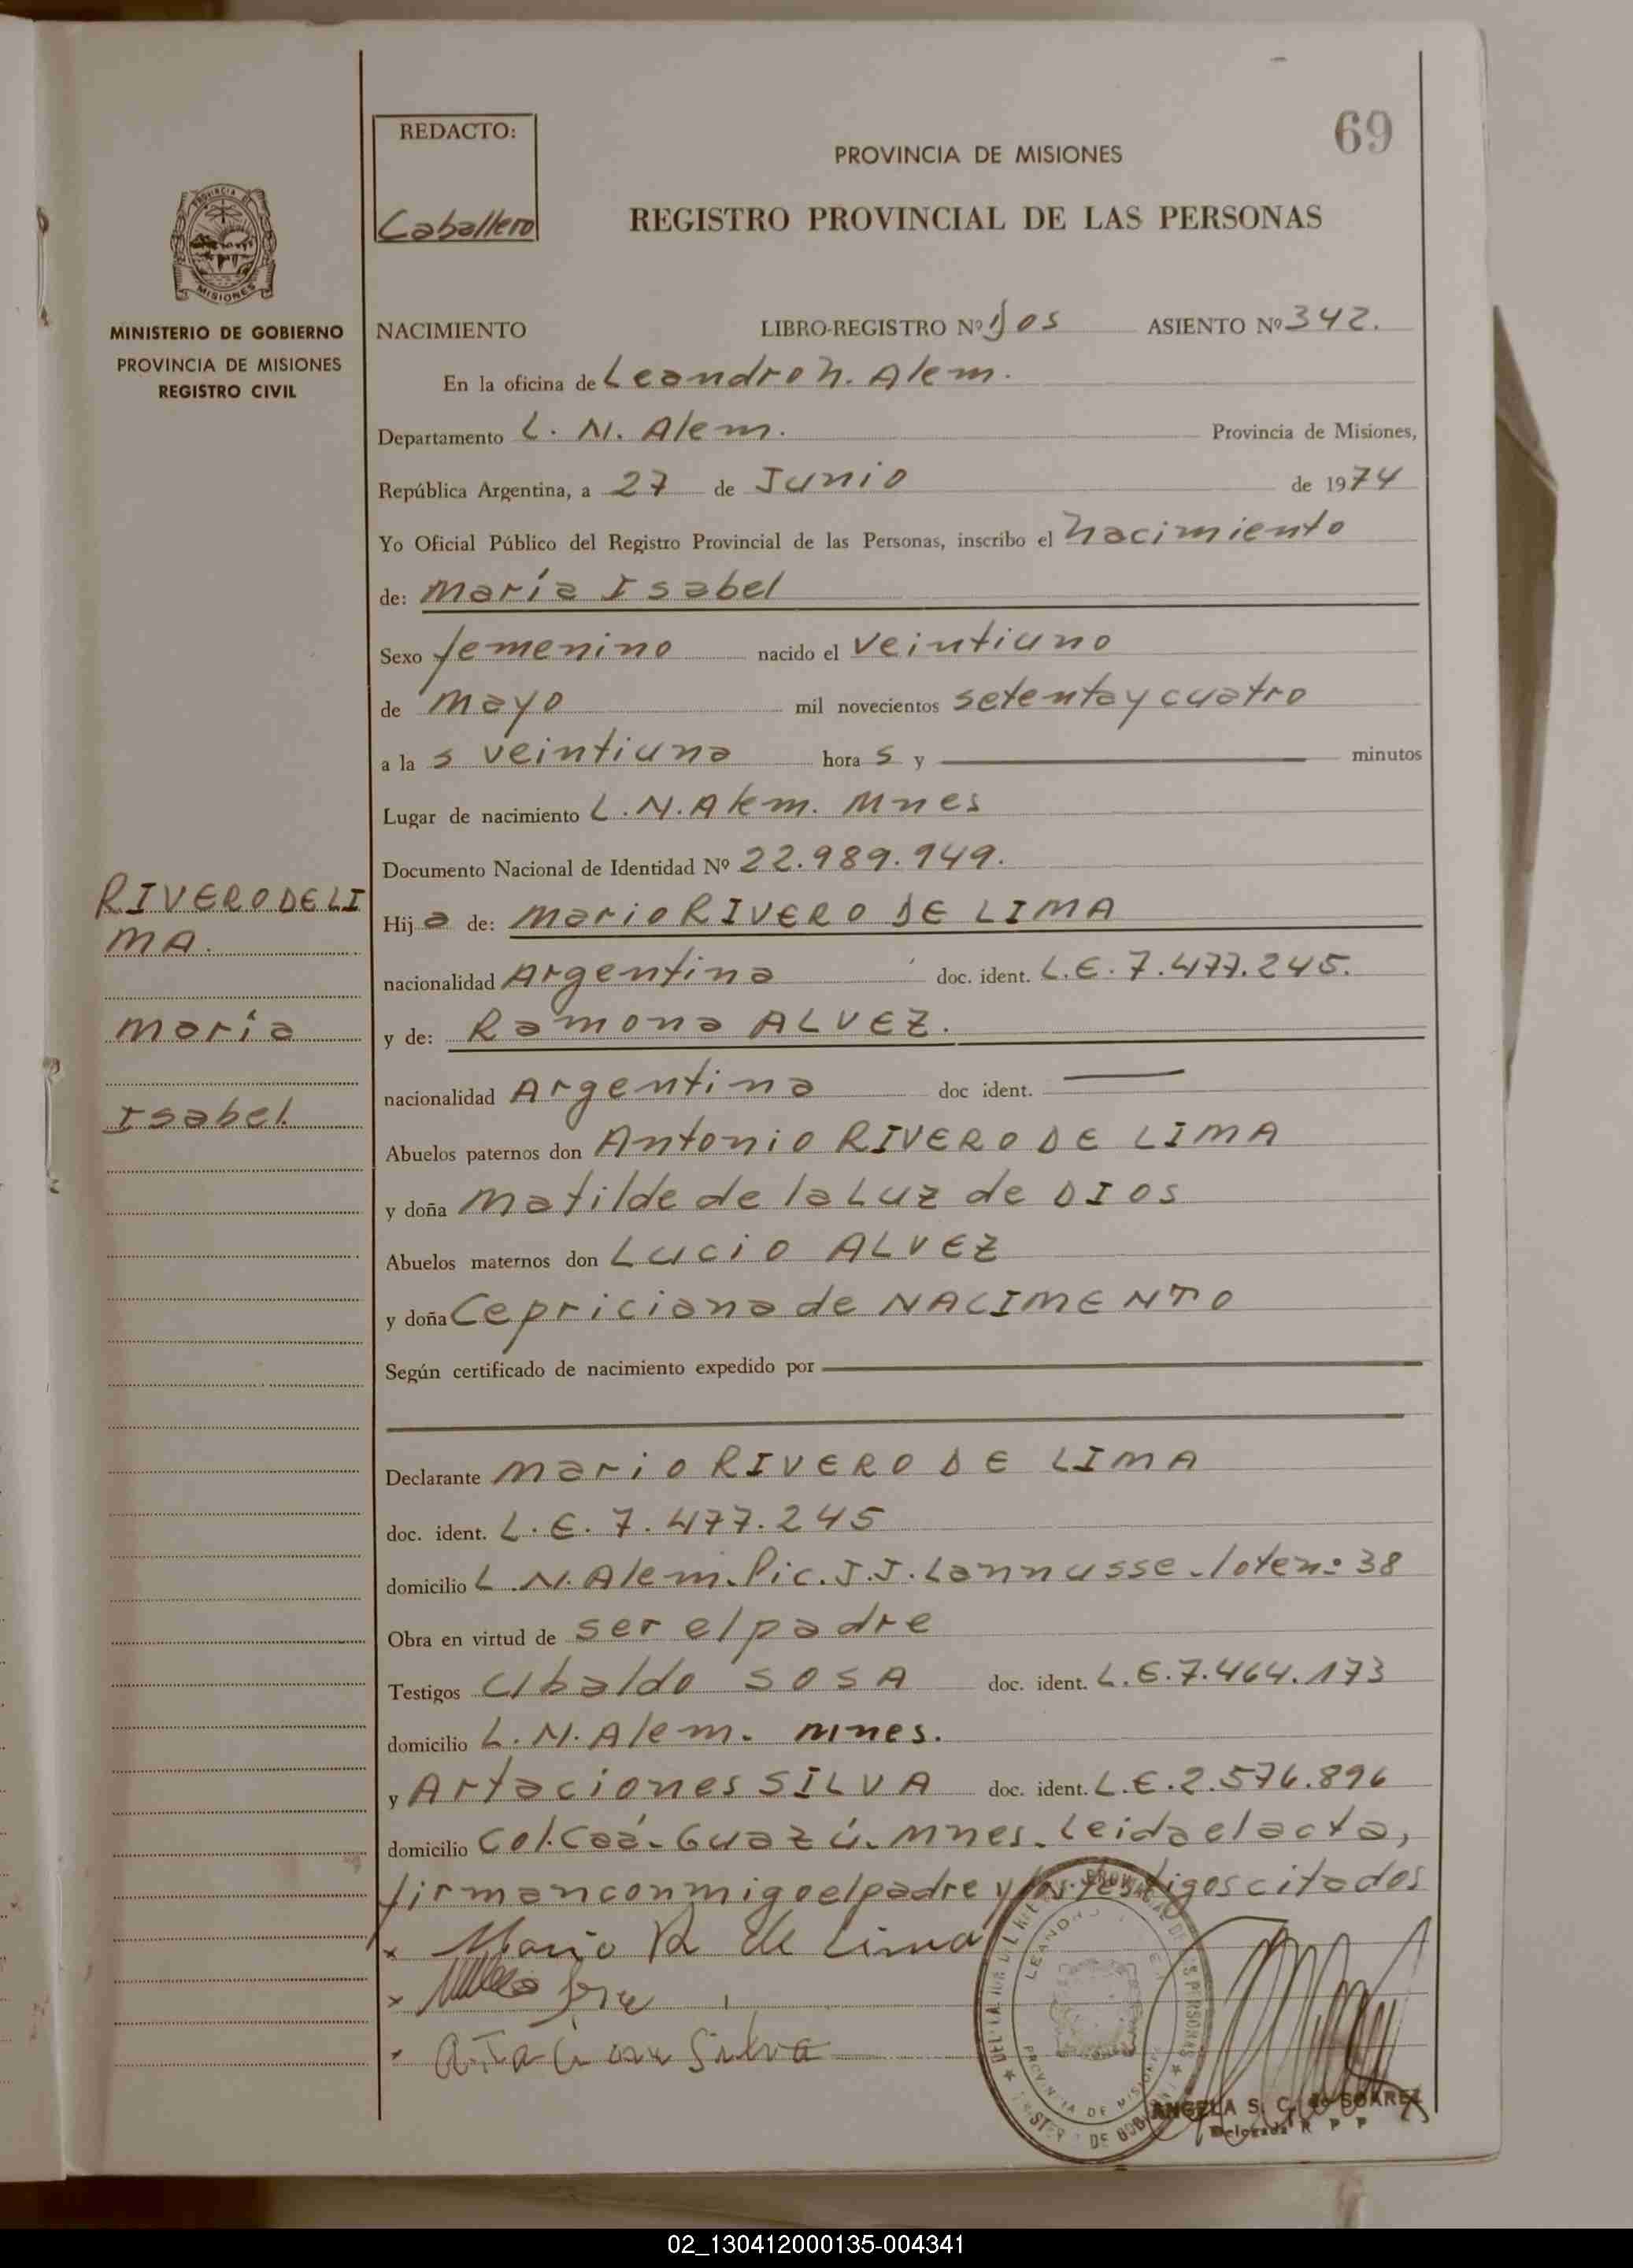 69
REDACTO:
Caballero
PROVINCIA DE MISIONES
REGISTRO PROVINCIAL DE LAS PERSONAS
PROVINCIA DE
MISIONES
MINISTERIO DE GOBIERNO
PROVINCIA DE MISIONES
REGISTRO CIVIL
NACIMIENTO LIBRO-REGISTRO Nº Dos ASIENTO Nº 342.
En la oficina de Leandro N. Alem.
Departamento L. N. Alem. Provincia de Misiones,
República Argentina, a 27 de Junio de 1974
Yo Oficial Público del Registro Provincial de las Personas, inscribo el nacimiento
de: María Isabel
Sexo femenino nacido el veintiuno
de mayo mil novecientos setenta y cuatro
a la s veintiuna hora s y minutos
Lugar de nacimiento L.N.Alem. Mnes
Documento Nacional de Identidad Nº 22.989.949.
RIVERO DE LI
MA.
María
Isabel.
Hij a de: Mario RIVERO DE LIMA
nacionalidad Argentina doc. ident. L.E. 7.477.245.
y de: Ramona ALVEZ.
nacionalidad Argentina doc ident.
Abuelos paternos don Antonio RIVERO DE LIMA
y doña Matilde de la Luz de DIOS
Abuelos maternos don Lucio ALVEZ
y doña Cepriciana de NACIMENTO
Según certificado de nacimiento expedido por
Declarante Mario RIVERO DE LIMA
doc. ident. L.E. 7.477.245
domicilio L.N.Alem. Pic. J.J. Lannusse - lote n: 38
Obra en virtud de ser el padre
Testigos Ubaldo SOSA doc. ident. L.E.7.464.173
domicilio L.N.Alem. Mnes.
y Artaciones SILVA doc. ident. L.E.2.576.896
domicilio Col. Caá-Guazú. Mnes. Leida el acta,
firman conmigo el padre y los testigos citados
x Mario R de Lima
x
x Silva
PROVINCIA DE MISIONES
ANGELA S. C. de SOAREZ
Delegada R P P
02_130412000135-004341